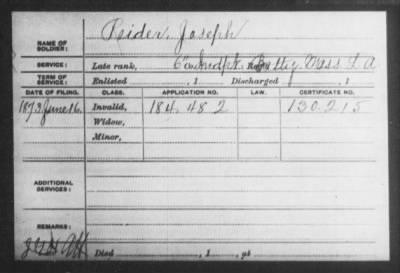 NAME OF SOLDIER: Reider, Joseph
SERVICE: Late rank, 6" Indpt. Btty. Mass. L. A
TERM OF SERVICE: Enlisted , 1 Discharged , 1
DATE OF FILING. CLASS. APPLICATION NO. LAW. CERTIFICATE NO.
1873 June 16. Invalid, 184.482 130.215
Widow,
Minor,
ADDITIONAL SERVICES:
REMARKS:
Died , 1 , at